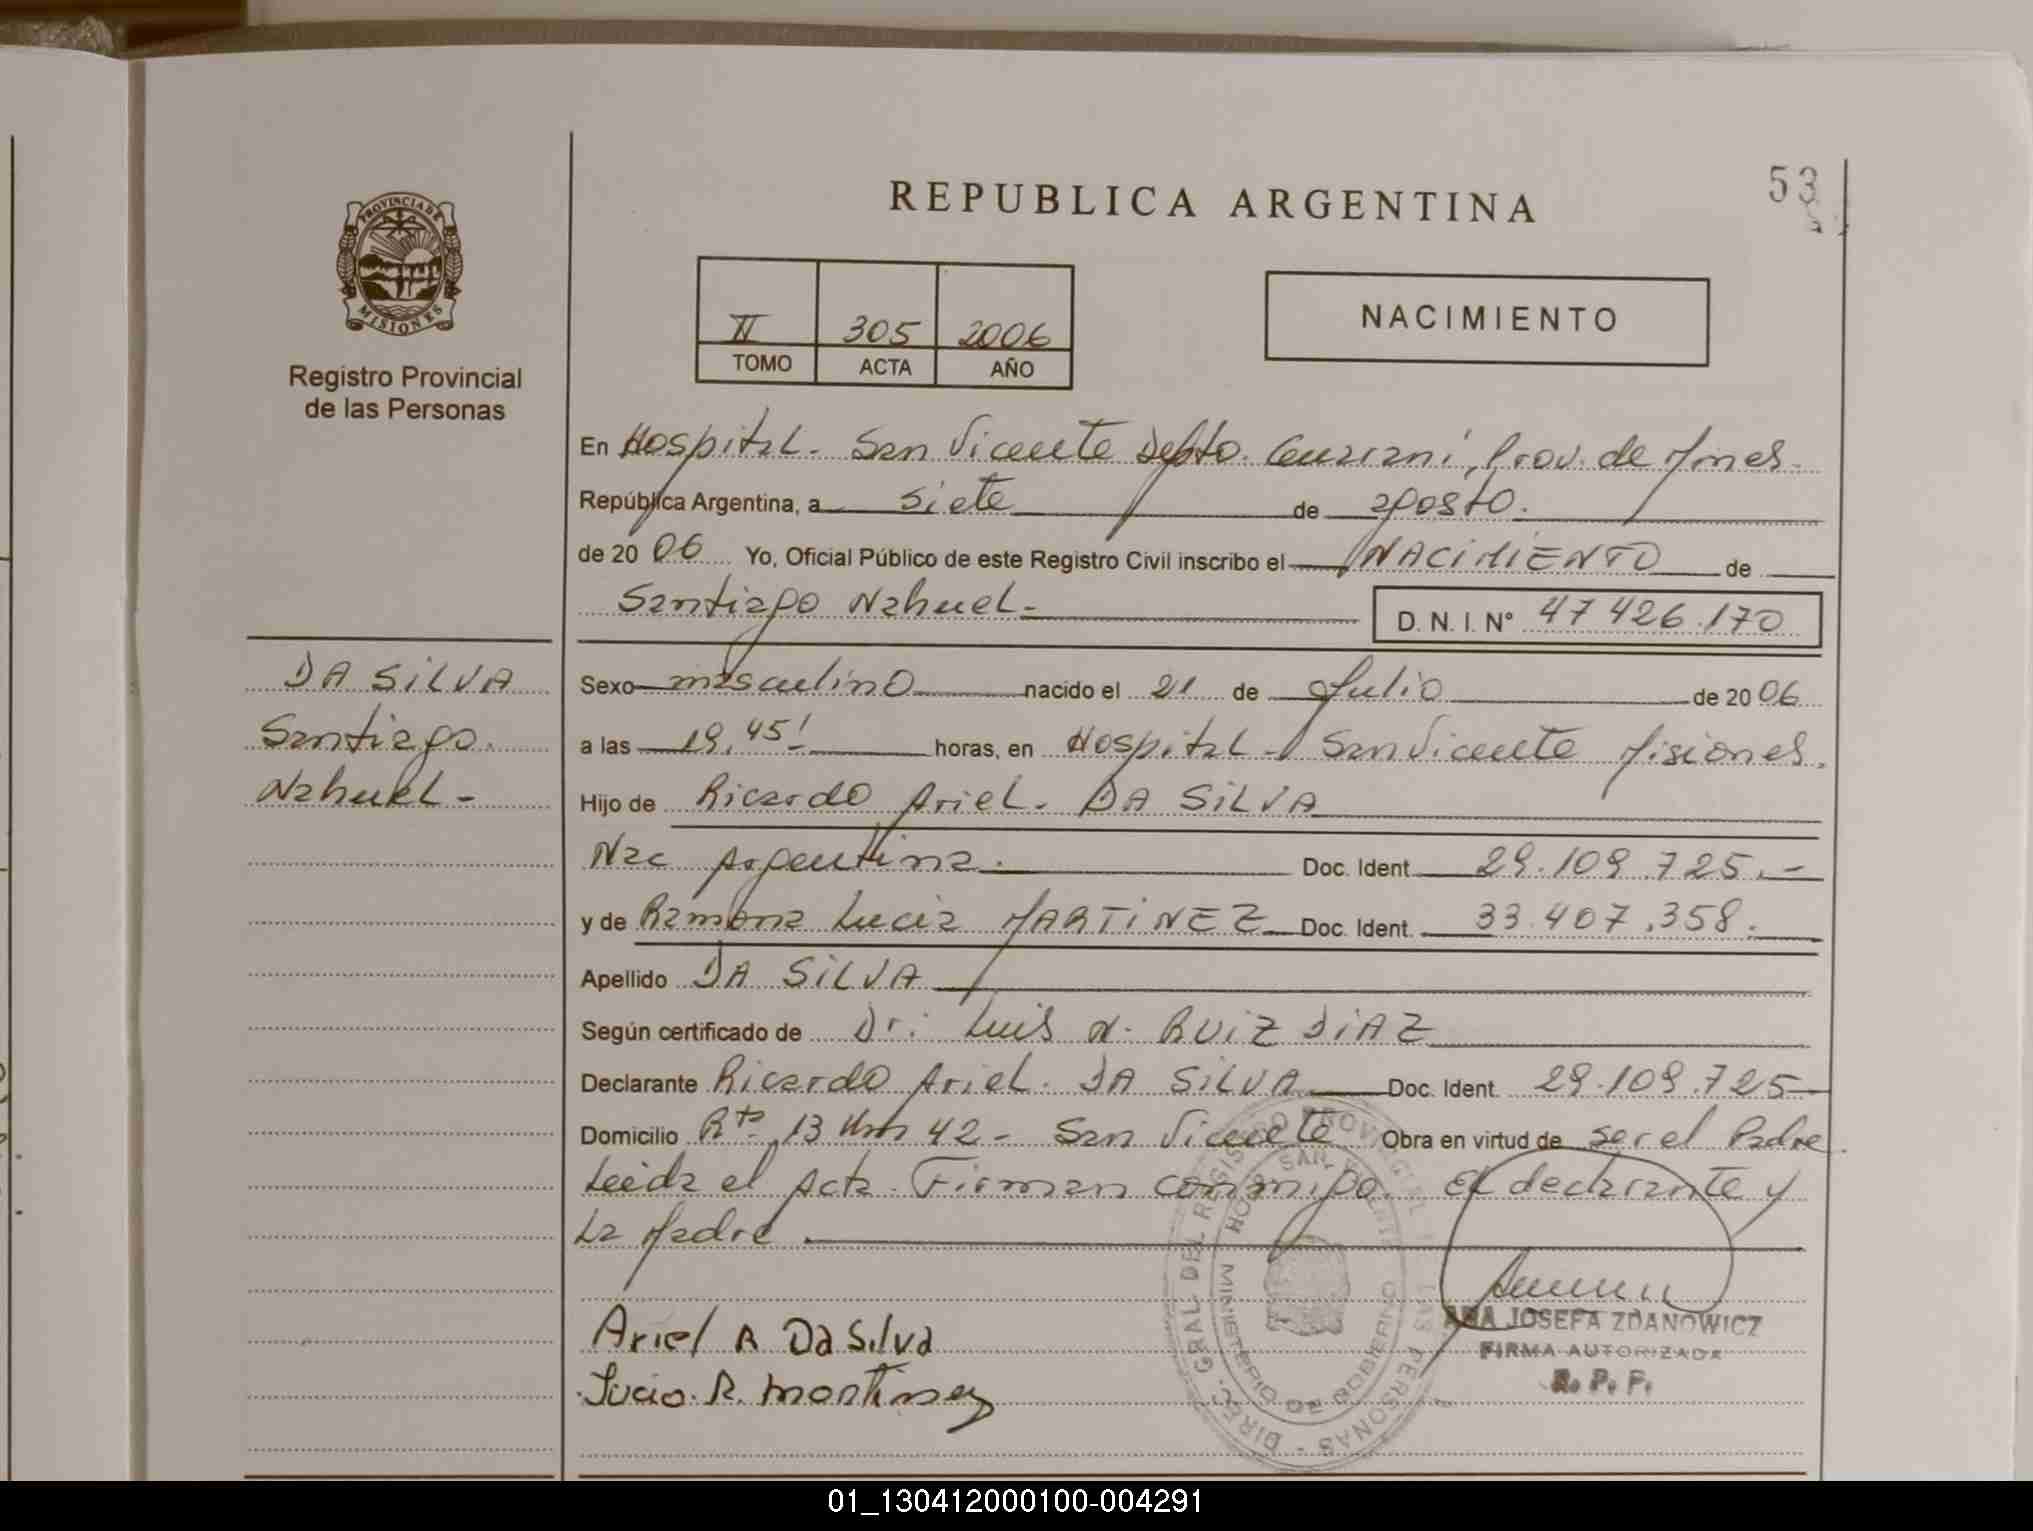 53
REPUBLICA ARGENTINA
PROVINCIA DE
MISIONES
Registro Provincial
de las Personas
II 305 2006
TOMO ACTA AÑO
NACIMIENTO
En Hospital. San Vicente Depto. Guarani, Prov. de Mnes.
República Argentina, a siete de agosto.
de 20 06 Yo, Oficial Público de este Registro Civil inscribo el NACIMIENTO de
Santiago Nahuel.
D. N. I. N° 47 426.170
DA SILVA
Santiago
Nahuel -
Sexo masculino nacido el 21 de Julio de 20 06
a las 19,45' horas, en Hospital - San Vicente Misiones.
Hijo de Ricardo Ariel. DA SILVA
Nac Argentina. Doc. Ident. 29.109.725.-
y de Ramona Lucia MARTINEZ Doc. Ident. 33.407.358.
Apellido DA SILVA
Según certificado de Dr: Luis N. RUIZ DIAZ
Declarante Ricardo Ariel. DA SILVA Doc. Ident. 29.109.725
Domicilio Rta. 13 Km 42 - San Vicente Obra en virtud de ser el Padre
Leida el Acta. Firman conmigo. El declarante y
La Madre
Ariel R Da Silva
Lucia. R. Martinez
DIREC. GRAL. DEL REGISTRO PROVINCIAL LAS PERSONAS
HOSP. SAN VICENTE
MINISTERIO DE GOBIERNO
ANA JOSEFA ZDANOWICZ
FIRMA AUTORIZADA
R. P. P.
01_130412000100-004291